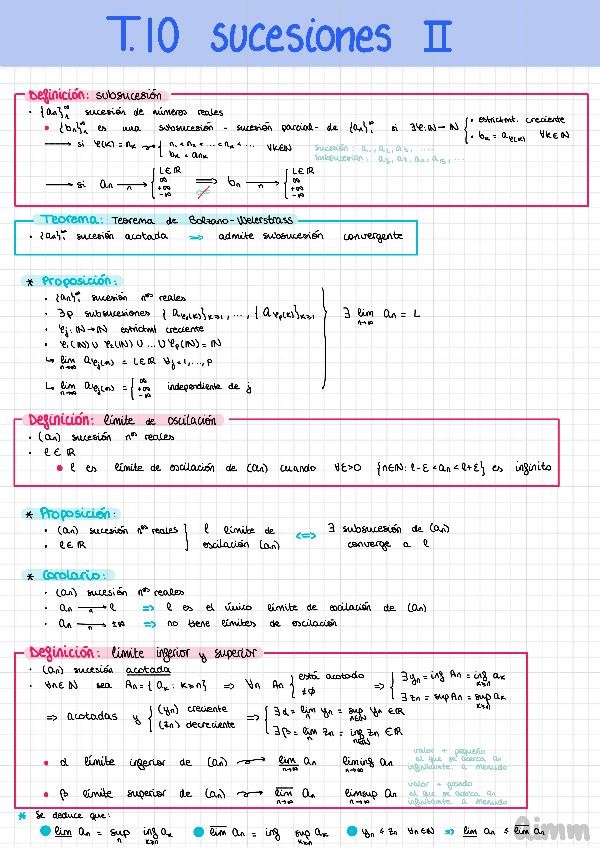 T.10 sucesiones II
Definición: subsucesión
· {an}₁^∞ sucesión de números reales
• {bn}₁^∞ es una subsucesión - sucesión parcial - de {an}₁^∞ si ∃φ:ℕ→ℕ { · estrictmt. creciente · bk = aφ(k) ∀k∈ℕ
→ si φ(k) = nk ⇝ { n₁<n₂<...<nk<... bk = ank ∀k∈ℕ
sucesión: a₁, a₂, a₃, ....
subsucesión: a₂, a₇, a₁₅, ...
→ si an →n { L∈ℝ ∞ +∞ -∞ ⟹ bn →n { L∈ℝ ∞ +∞ -∞
Teorema: Teorema de Bolzano-Weierstrass
· {an}₁^∞ sucesión acotada ⇒ admite subsucesión convergente
* Proposición:
· {an}₁^∞ sucesión nᵒˢ reales
· ∃p subsucesiones {aφ₁(k)}k≥1, ..., {aφp(k)}k≥1
· φj: ℕ→ℕ estrictmt creciente
· φ₁(ℕ) ∪ φ₂(ℕ) ∪ ... ∪ φp(ℕ) = ℕ
↳ lim n→∞ aφj(n) = L∈ℝ ∀j=1,...,p
↳ lim n→∞ aφj(n) = { ∞ +∞ -∞ independiente de j
} ∃ lim n→∞ an = L
Definición: límite de oscilación
· (an) sucesión nᵒˢ reales
· l ∈ ℝ
• l es límite de oscilación de (an) cuando ∀ε>0 {n∈ℕ: l-ε<an<l+ε} es infinito
* Proposición:
· (an) sucesión nᵒˢ reales
· l∈ℝ
} l límite de oscilación (an) ⟺ ∃ subsucesión de (an) converge a l
* Corolario:
· (an) sucesión nᵒˢ reales
· an →n l ⇒ l es el único límite de oscilación de (an)
· an →n ±∞ ⇒ no tiene límites de oscilación
Definición: límite inferior y superior
· (an) sucesión acotada
· ∀n∈ℕ sea An = {ak : k≥n} ⇒ ∀n An { está acotado ≠∅ ⇒ { ∃yn = inf An = inf k≥n ak ∃zn = sup An = sup k≥n ak
⇒ acotadas y { (yn) creciente (zn) decreciente ⇒ { ∃α = lim n yn = sup n∈ℕ yn ∈ℝ ∃β = lim n zn = inf n∈ℕ zn ∈ℝ
• α límite inferior de (an) ⇝ lim n→∞ an liminf an n→∞
valor + pequeño
al que se acerca an
infinitamte. a menudo
• β límite superior de (an) ⇝ lim n→∞ an limsup an n→∞
valor + grande
al que se acerca an
infinitamte a menudo
* Se deduce que:
● lim an = sup n inf k≥n ak ● lim an = inf n sup k≥n ak ● yn ≤ zn ∀n∈ℕ ⇒ lim an ≤ lim an
aimm